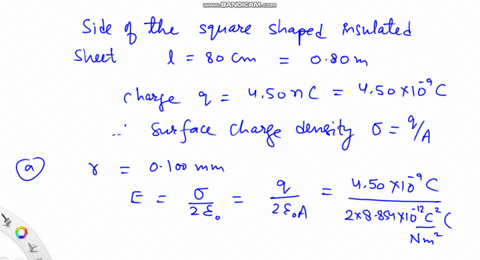 WWW.BANDICAM.COM
Side of the square shaped insulated
sheet l = 80 cm = 0.80 m
charge q = 4.50 nC = 4.50 × 10⁻⁹ C
∴ Surface charge density σ = q/A
(a) r = 0.100 mm
E = σ/2ε₀ = q/2ε₀A = 4.50 × 10⁻⁹ C/2 × 8.854 × 10⁻¹² C² (/Nm²